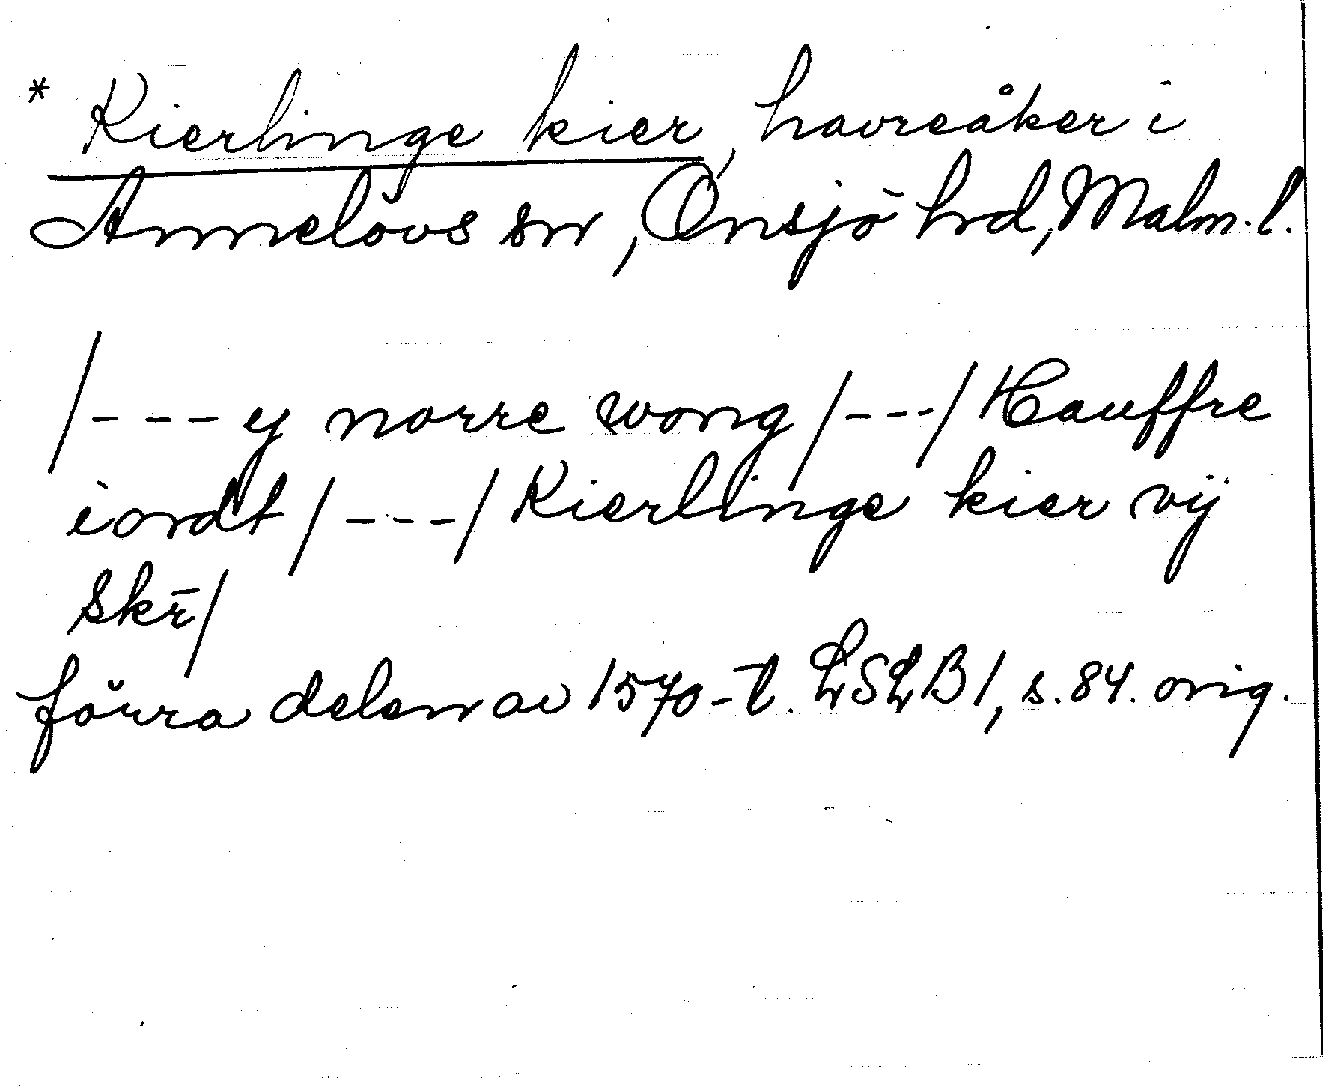 * Kierlinge kier, havreåker i
Annelövs sn, Onsjö hrd, Malm. l.
/--- y norre wong /---/ Hauffre
iordt /---/ Kierlinge kier vij
skr̄/
förra delen av 1570-t. LSLB 1, s. 84. orig.